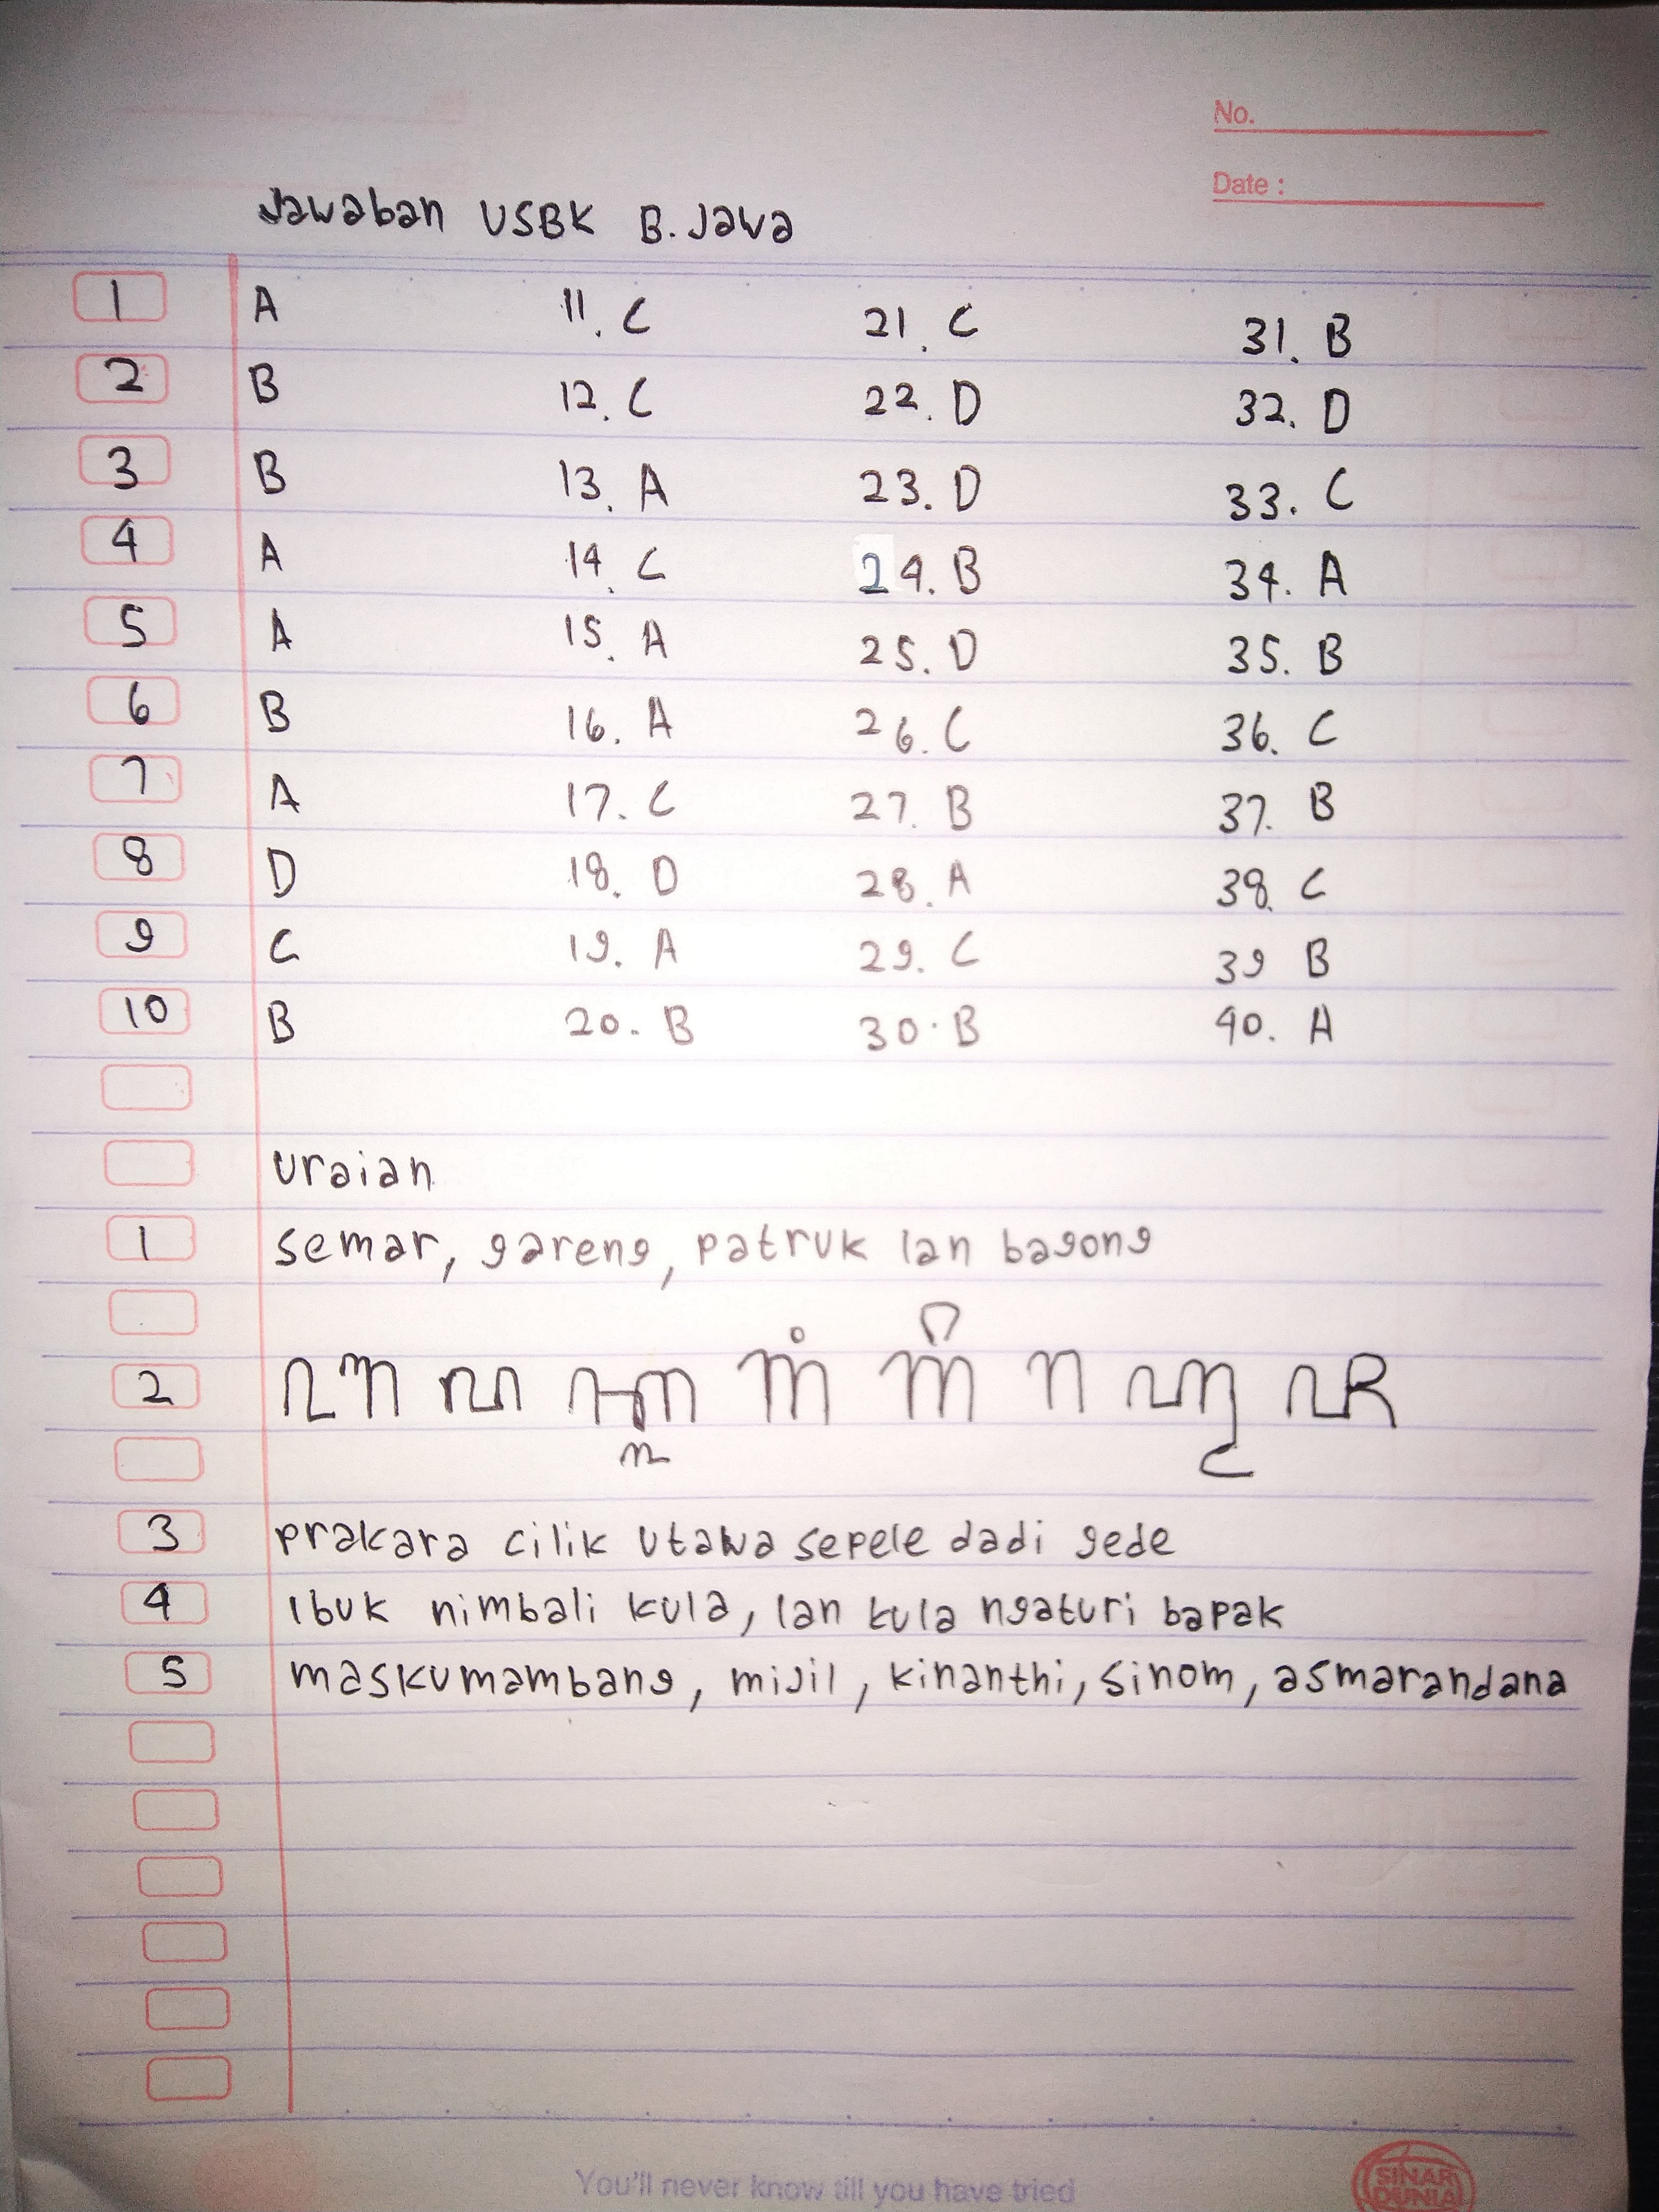 No.
Date :
Jawaban USBK B. Jawa
1 A 11. C 21. C 31. B
2 B 12. C 22. D 32. D
3 B 13. A 23. D 33. C
4 A 14. C 24. B 34. A
5 A 15. A 25. D 35. B
6 B 16. A 26. C 36. C
7 A 17. C 27. B 37. B
8 D 18. D 28. A 38. C
9 C 19. A 29. C 39 B
10 B 20. B 30. B 40. A
Uraian
1 semar, gareng, patruk lan bagong
2
3 prakara cilik utawa sepele dadi gede
4 Ibuk nimbali kula, lan kula ngaturi bapak
5 maskumambang, mijil, kinanthi, sinom, asmarandana
You'll never know till you have tried
SINAR DUNIA